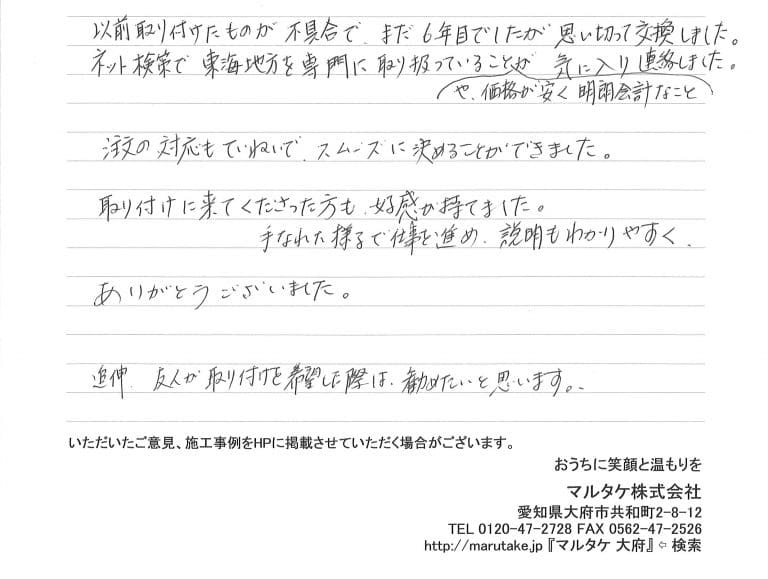 以前取り付けたものが不具合で、まだ6年目でしたが思い切って交換しました。
ネット検策で東海地方を専門に取り扱っていることが気に入り連絡しました。
や、価格が安く明朗会計なこと
注文の対応もていねいで、スムーズに決めることができました。
取り付けに来てくださった方も、好感が持てました。
手なれた様子で仕事を進め、説明もわかりやすく、
ありがとうございました。
追伸、友人が取り付けを希望した際は、勧めたいと思います。
いただいたご意見、施工事例をHPに掲載させていただく場合がございます。
おうちに笑顔と温もりを
マルタケ株式会社
愛知県大府市共和町2-8-12
TEL 0120-47-2728 FAX 0562-47-2526
http://marutake.jp『マルタケ 大府』⇦ 検索